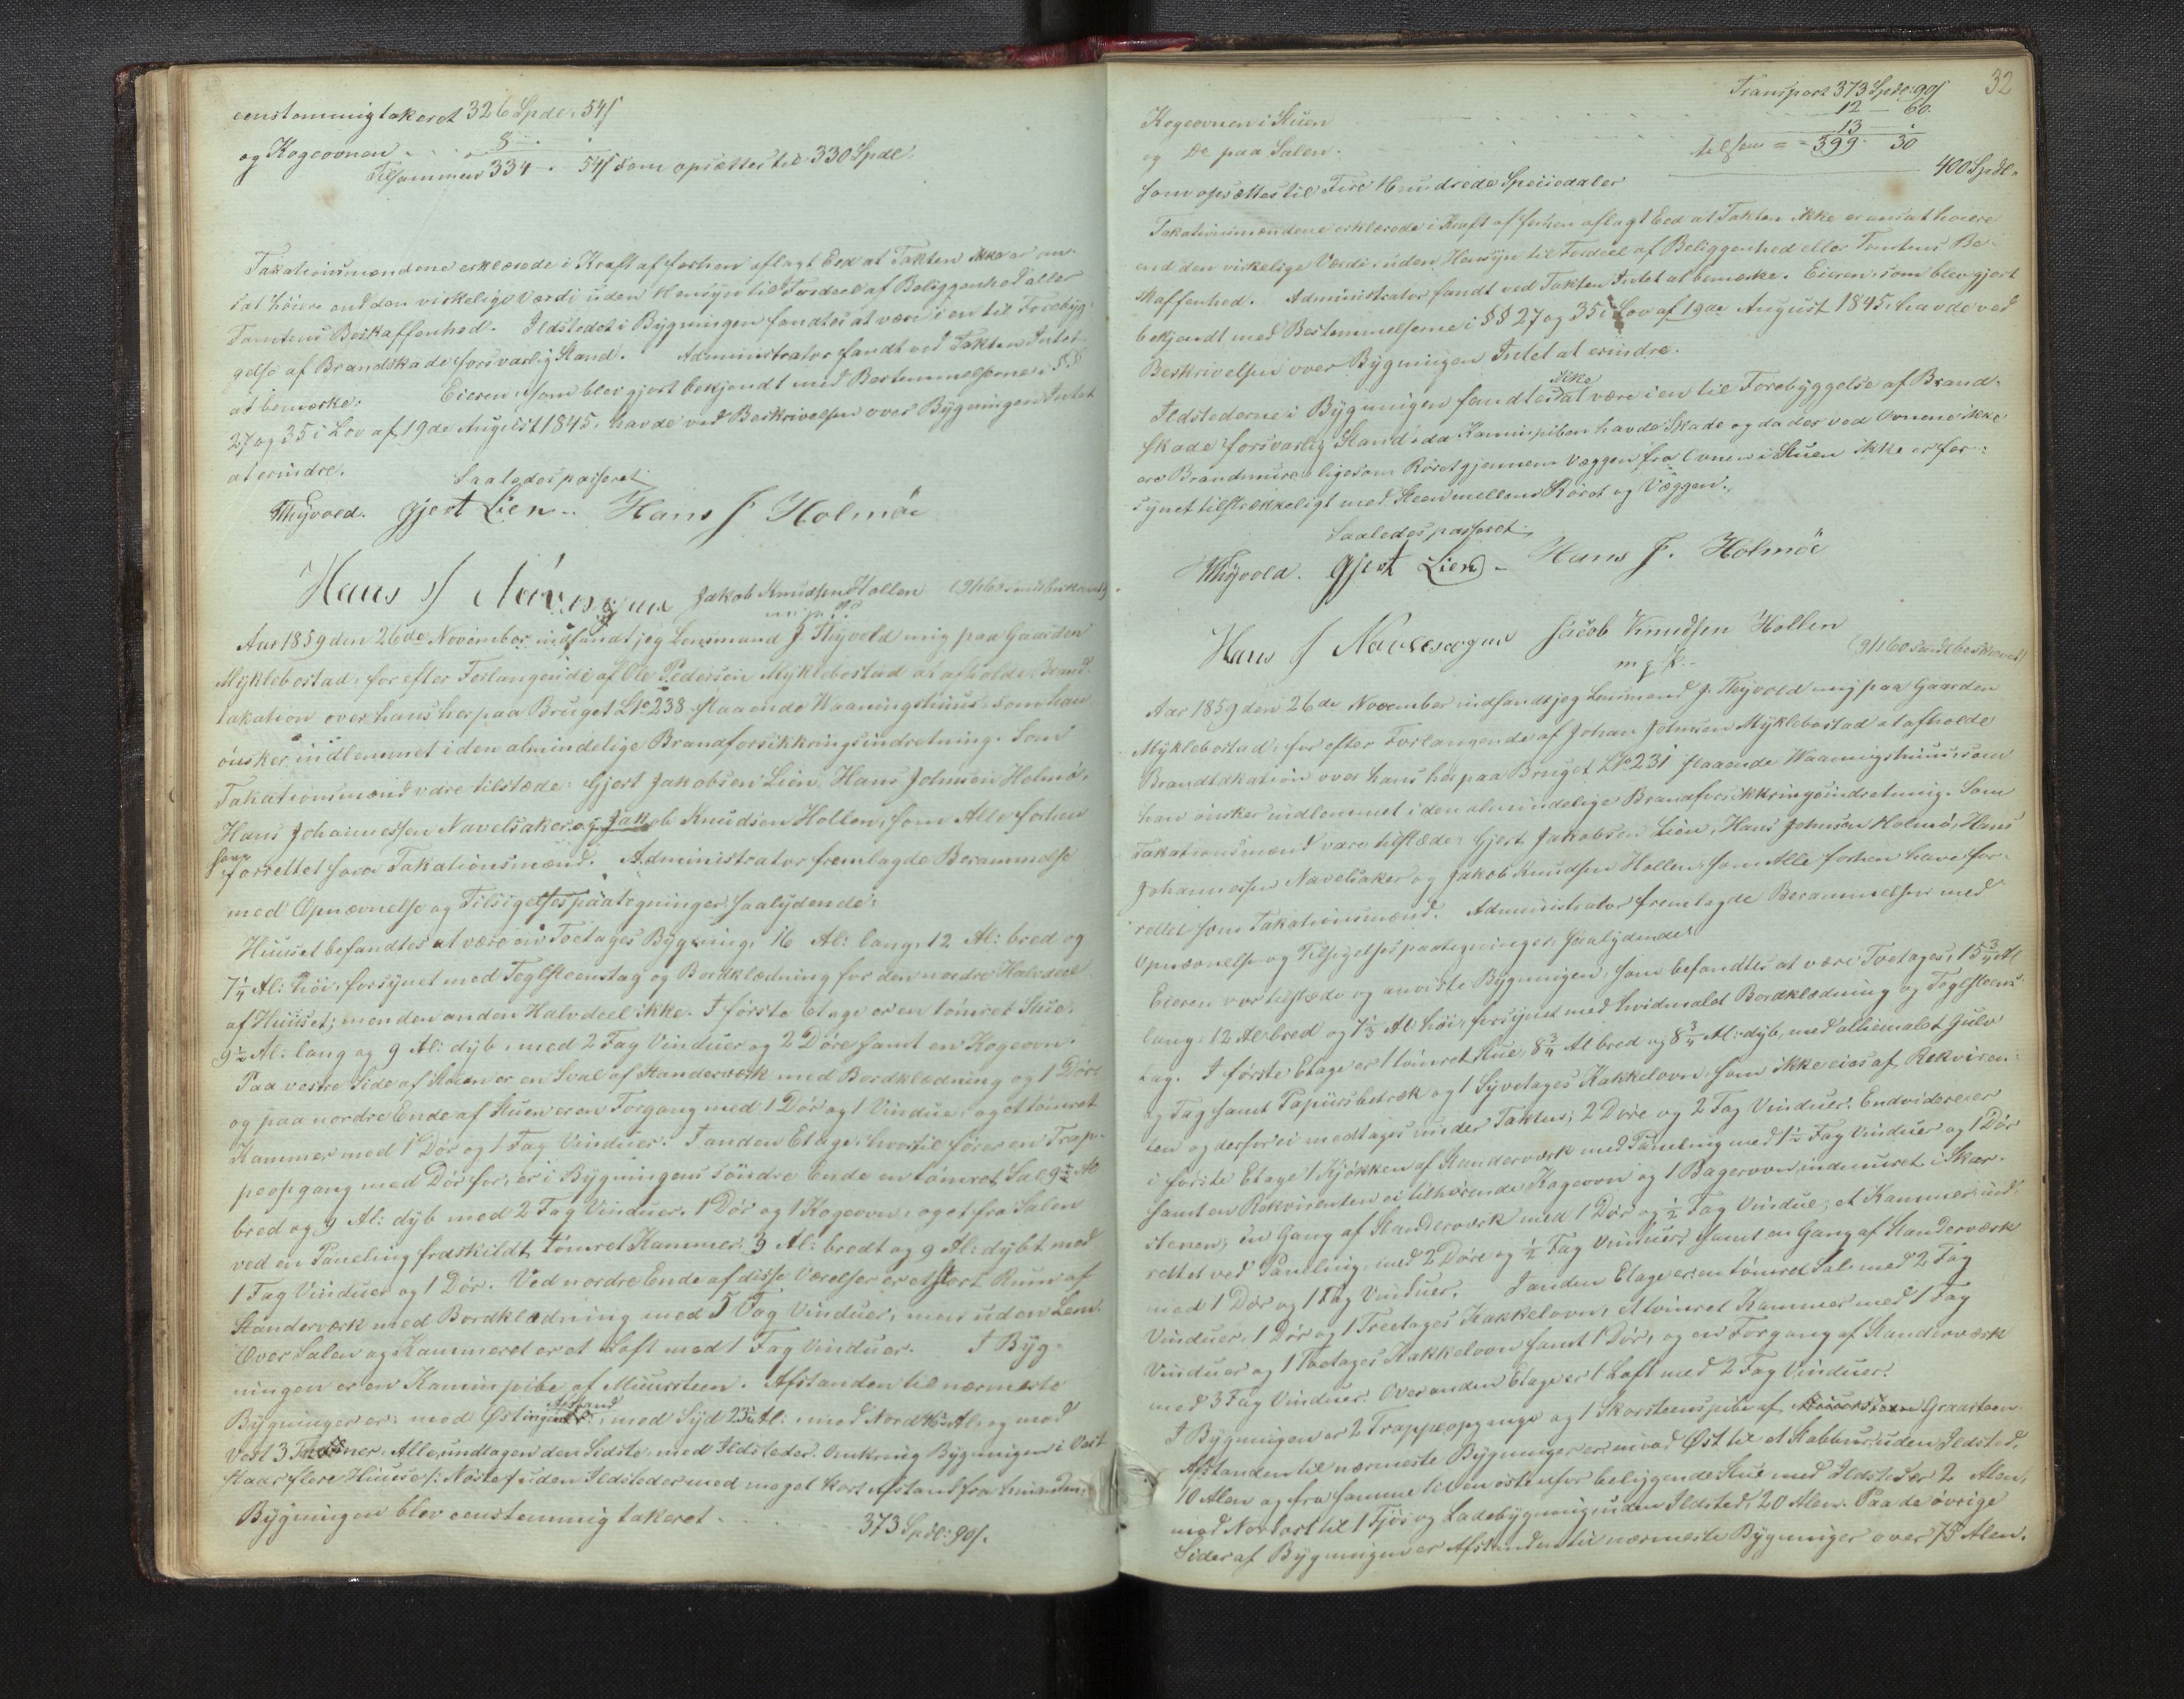 eenstemmig takeret 326 Spdl: 54 s
og Kogeovnen . . . 8 -
Tilsammen 334 - 54 s som opsættes til 330 Spdl.
Taxationsmændene erklærede i Kraft af forhen aflagt Eed at Taxten ikke er an-
sat höiere end den virkelige Værdi uden Hensyn til Fordeel af Beliggenhed eller
Tomtens Beskaffenhed. Ildstedet i Bygningen fandtes at være i en til Forebyg-
gelse af Brandskade forsvarlig Stand. Administrator fandt ved Taxten Intet
at bemærke. Eieren, som blev gjort bekjendt med Bestemmelserne i §§
27 og 35 i Lov af 19de August 1845, havde ved Beskrivelsen over Bygningen Intet
at erindre.
Saaledes passeret
Thyvold. Gjert Lien. Hans J Holmöe
Hans J Jakob Knudsen Hollen
m. f. P.
Aar 1859 den 26de November indfandt jeg Lensmand J. Thyvold mig paa Gaarden
Myklebostad, for efter Forlangende af Ole Pedersen Myklebostad at afholde Brand-
takation over hans her paa Bruget LNo 238 staaende Waaningshuus, som han
önsker indlemmet i den almindelige Brandforsikkringsindretning. Som
Takationsmænd vare tilstæde: Gjert Jakobsen Lien, Hans Johnsen Holmö,
Hans Johannessen Navelsaker og Jakob Knudsen Hollen, som Alle forhen
have
forrettet som Takationsmænd. Administrator fremlagde Berammelse
med Opnævnelse og Tilsigelsespaategninger saalydende:
Huuset befandtes at være en Toetages Bygning, 16 Al: lang, 12 Al: bred og
7¼ Al: höi, forsynet med Teglsteenstag og Bordklædning for den nordre Halvdeel
af Huuset; men den anden Halvdeel ikke. I förste Etage er en tömret Stue,
9½ Al: lang og 9 Al: dyb, med 2 Fag Vinduer og 2 Döre samt en Kogeovn.
Paa vestre Side af Stuen er en Sval af Standerværk med Bordklædning og 1 Dör
og paa nordre Ende af Stuen er en Forgang med 1 Dör og 1 Vindue, og et tömret
Kammer med 1 Dör og 1 Fag Vinduer. I anden Etage, hvortil förer en Trap-
peopgang med Dör for, er i Bygningens söndre Ende en tömret Sal 9½ Al
bred og 9 Al: dyb med 2 Fag Vinduer, 1 Dör og 1 Kogeovn, og et fra Salen
ved en Paneling fraskildt tömret Kammer, 3 Al: bredt og 9 Al: dybt med
1 Fag Vinduer og 1 Dör. Ved nordre Ende af disse Værelser er et stort Rum af
Standerværk med Bordklædning med 5 Fag Vinduer, men uden Lem.
Over Salen og Kammeret er et Loft med 1 Fag Vinduer. I Byg-
ningen er en Kaminpibe af Muursteen. Afstanden til nærmeste
Afstand
Bygninger er: mod Øst ingen, mod Syd Al: mod Nord Al, og mod
Vest 3 Alle, undtagen den Sidste, med Ildsteder. Omkring Bygningen i Vest
staar flere Huuse /: Nöste :/ uden Ildsteder med meget kort Afstand fra hinanden.
Bygningen blev eenstemmig takeret . . . 373 Spdl: 90 s.
32
Transport 373 Spdl: 90 s
Kogeovnen i Stuen . . . 12 - 60.
og Do paa Salen . . . 13 -
tilsam = 399 - 30
som opsættes til Fire Hundrede Speciedaler 400 Spdl.
Takationsmændene erklærede i Kraft af forhen aflagt Eed at Takten ikke er ansat höiere
end den virkelige Værdi, uden Hensyn til Fordeel af Beliggenhed eller Tomtens Be-
skaffenhed. Administrator fandt ved Takten Intet at bemærke. Eieren, som blev gjort
bekjendt med Bestemmelserne i §§ 27 og 35 i Lov af 19de August 1845, havde ved
Beskrivelsen over Bygningen Intet at erindre.
ikke
Ildstederne i Bygningen fandtes at være i en til Forebyggelse af Brand-
skade forsvarlig Stand, da Kaminpiben havde Skade og da der ved Ovnene ikke
ere Brandmure ligesom Röret gjennem Væggen fra Ovnen i Stuen ikke er for-
synet tilstrækkeligt med Steen mellem Röret og Væggen.
Saaledes passeret
Thyvold. Gjert Lien - Hans J. Holmöe
Hans J Jacob Knudsen Hollen
m. f. P.
Aar 1859 den 26de November indfandt jeg Lensmand J. Thyvold mig paa Gaarden
Myklebostad, for efter Forlangende af Johan Johnsen Myklebostad at afholde
Brandtakation over hans her paa Bruget LNo 231 staaende Waaningshuus, som
han önsker indlemmet i den almindelige Brandforsikkringsindretning. Som
Takationsmænd vare tilstæde: Gjert Jakobsen Lien, Hans Johnsen Holmö, Hans
Johannessen Navelsaker og Jakob Knudsen Hollen, som Alle forhen have for-
rettet som Takationsmænd. Administrator fremlagde Berammelsen med
Opnævnelse og Tilsigelsespaategninger, saalydende:
Eieren var tilstæde og anviste Bygningen, som befandtes at være Toetages, 15¾ Al
lang, 12 Al bred og 7⅓ Al: höi, forsynet med hvidmalet Bordklædning og Teglsteens-
tag. I förste Etage er 1 tömret Stue, 8¾ Al bred og 8¾ Al: dyb, med oliemalet Gulv
og Tag samt Papiirsbetræk og 1 Kakkelovn, som ikke eies af Rekviren-
ten og derfor ei medtages under Takten; 2 Döre og 2 Fag Vinduer. Endvidere er
i förste Etage 1 Kjökken af Standerværk med Paneling med 1½ Fag Vinduer og 1 Dör
samt en Rekvirenten ei tilhörende Kogeovn og 1 Bagerovn, indmuret i Skor-
stenen; en Gang af Standerværk med 1 Dör og ½ Fag Vindue; et Kammer, ind-
rettet ved Paneling, med 2 Döre og ½ Fag Vinduer, samt en Gang af Standerværk
med 1 Dör og 1 Fag Vinduer. I anden Etage er: en tömret Sal med 2 Fag
Vinduer, 1 Dör og 1 Treetages Kakkelovn, et tömret Kammer med 1 Fag
Vinduer og 1 Toetages Kakkelovn samt 1 Dör, og en Forgang af Standerværk
med 3 Fag Vinduer. Over anden Etage er 1 Loft med 2 Fag Vinduer.
I Bygningen er 2 Trappeopgange og 1 Skorsteenspibe af Graasteen.
Afstanden til nærmeste Bygninger er: mod Øst til et Stabbur, uden Ildsted,
10 Alen og fra samme til en östenfor beliggende Stue med Ildsted er 2 Alen,
mod Nordost til 1 Fjös og Ladebygning, uden Ildsted, 20 Alen. Paa de övrige
Sider af Bygningen er Afstanden til nærmeste Bygninger over 75 Alen.